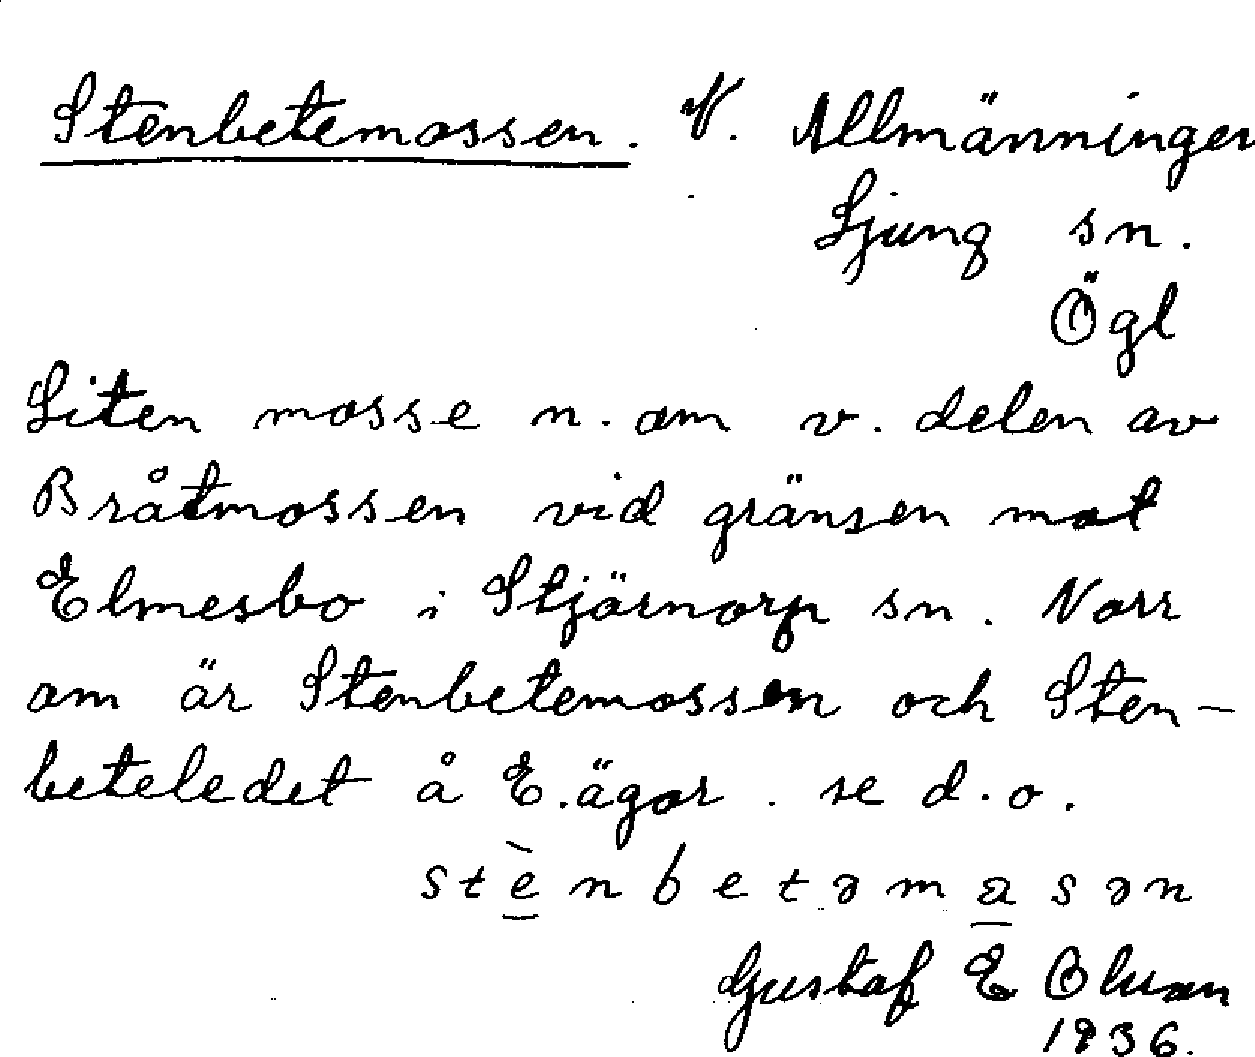 Stenbetemossen. N. Allmänningen
Ljung sn.
Ögl
Liten mosse n. om v. delen av
Bråtmossen vid gränsen mot
Elmesbo i Stjärnorp sn. Norr
om är Stenbetemossen och Sten-
beteledet å E. ägor. se d.o.
stènbetəmasən
Gustaf E
1936.